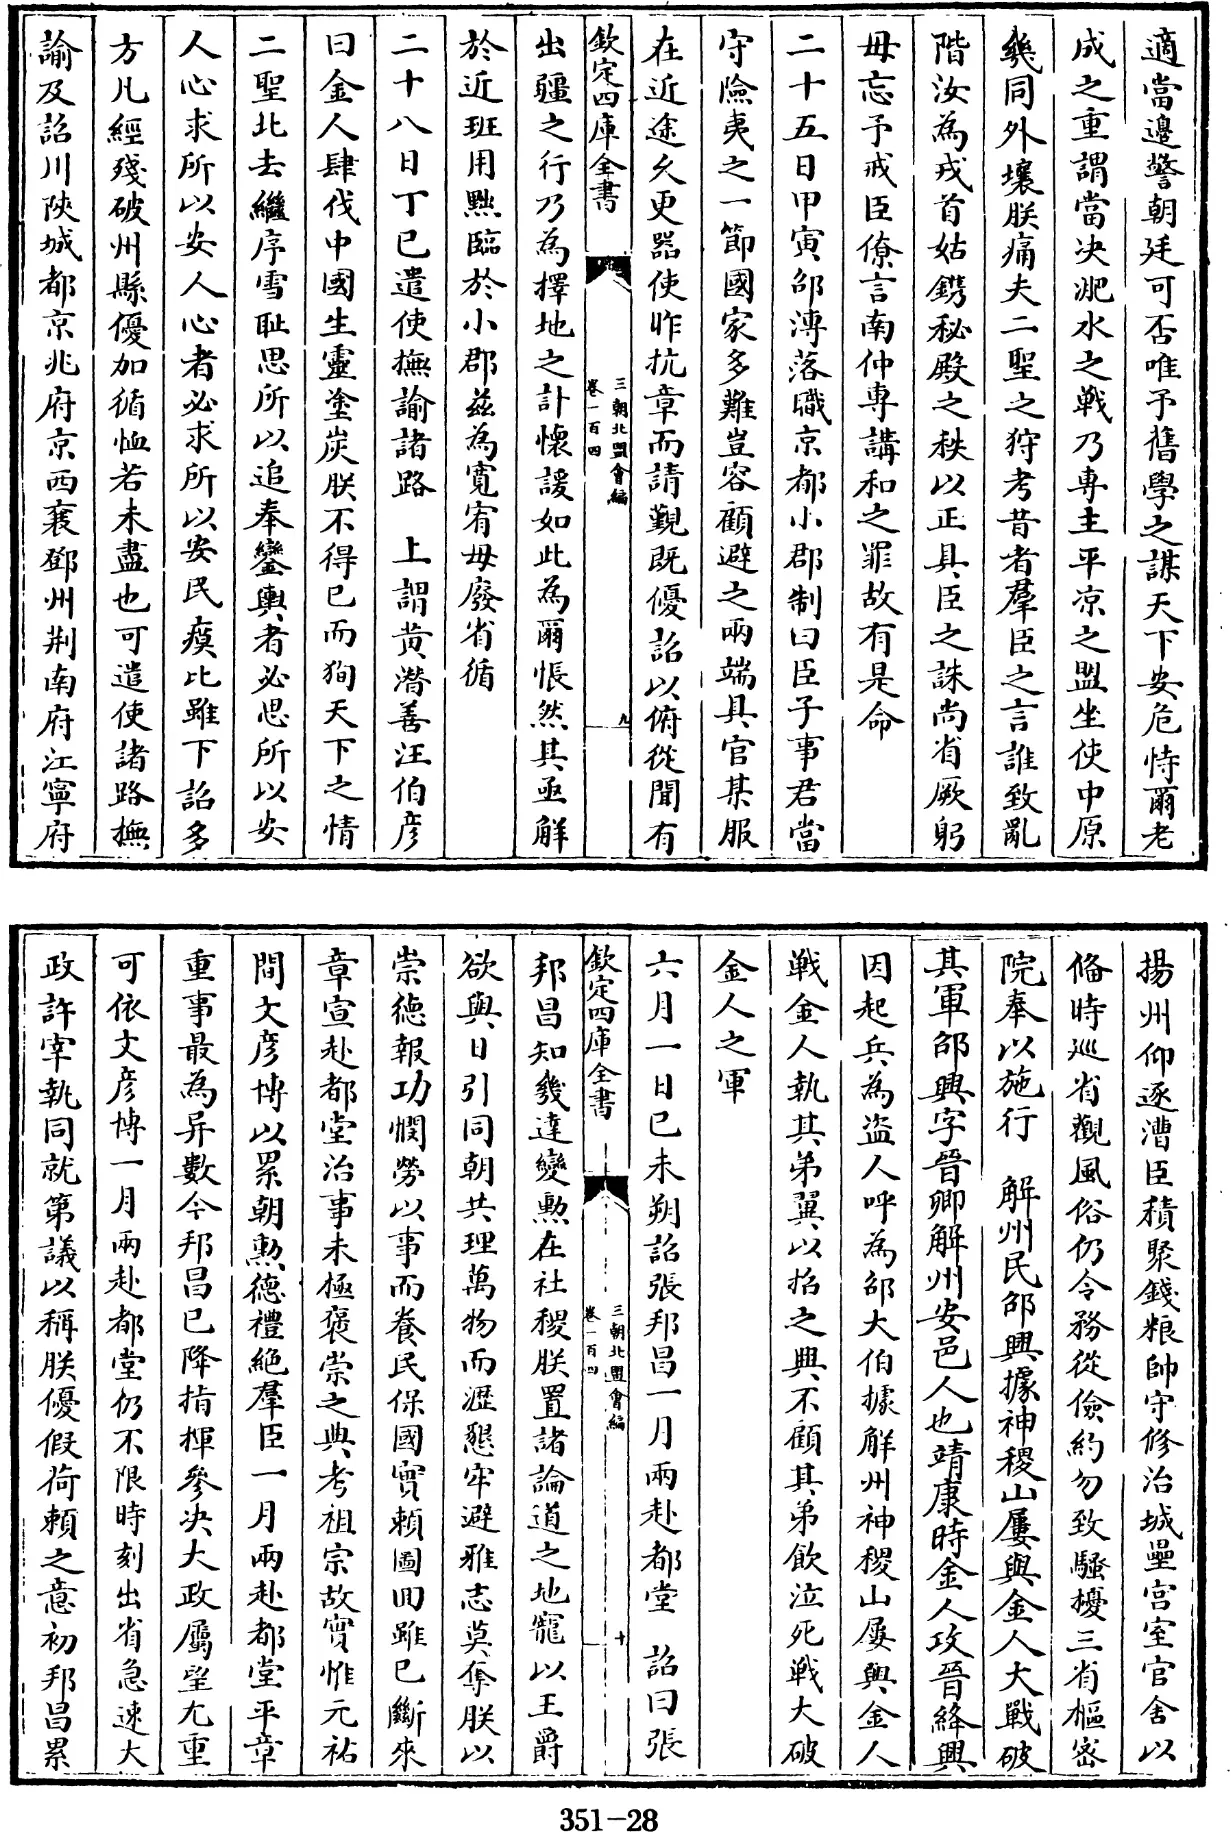 適當邊警朝廷可否唯予舊學之謀天下安危恃爾老
成之重謂當决淝水之戰乃專主平凉之盟坐使中原
幾同外壤朕痛夫二聖之狩考昔者羣臣之言誰致亂
階汝為戎首姑鐫秘殿之秩以正具臣之誅尚省厥躬
毋忘予戒臣僚言南仲専講和之罪故有是命
二十五日甲寅邵溥落職京都小郡制曰臣子事君當
守險夷之一節國家多難豈容顧避之兩端具官某服
在近途久更器使昨抗章而請覲既優詔以俯從聞有
欽定四庫全書
三朝北盟會編
卷一百四
九
出疆之行乃為擇地之計懷諼如此為爾悵然其亟解
於近班用黜臨於小郡兹為寛宥毋廢省循
二十八日丁巳遣使撫諭諸路 上謂黄潛善汪伯彦
曰金人肆伐中國生靈塗炭朕不得已而狥天下之情
二聖北去繼序雪耻思所以追奉鑾輿者必思所以安
人心求所以安人心者必求所以安民瘼比雖下詔多
方凡經殘破州縣優加循恤若未盡也可遣使諸路撫
諭及詔川陜城都京兆府京西襄鄧州荆南府江寧府
揚州仰逐漕臣積聚錢粮帥守修治城壘宫室官舍以
俻時廵省觀風俗仍令務從儉約勿致騷擾三省樞密
院奉以施行 解州民邵興據神稷山屢與金人大戰破
其軍邵興字晉卿解州安邑人也靖康時金人攻晉絳興
因起兵為盗人呼為邵大伯據解州神稷山屢與金人
戰金人執其弟翼以招之興不顧其弟飲泣死戰大破
金人之軍
六月一日已未朔詔張邦昌一月兩赴都堂 詔曰張
欽定四庫全書
三朝北盟會編
卷一百四
十
邦昌知幾達變勲在社稷朕置諸論道之地寵以王爵
欲與日引同朝共理萬物而瀝懇牢避雅志莫奪朕以
崇德報功憫勞以事而養民保國實頼圖囘雖已斷來
章宣赴都堂治事未極襃崇之典考祖宗故實惟元祐
間文彦博以累朝勲德禮絶羣臣一月兩赴都堂平章
重事最為异數今邦昌已降指揮參决大政屬望尤重
可依文彦博一月兩赴都堂仍不限時刻出省急速大
政許宰執同就第議以稱朕優假荷頼之意初邦昌累
351-28